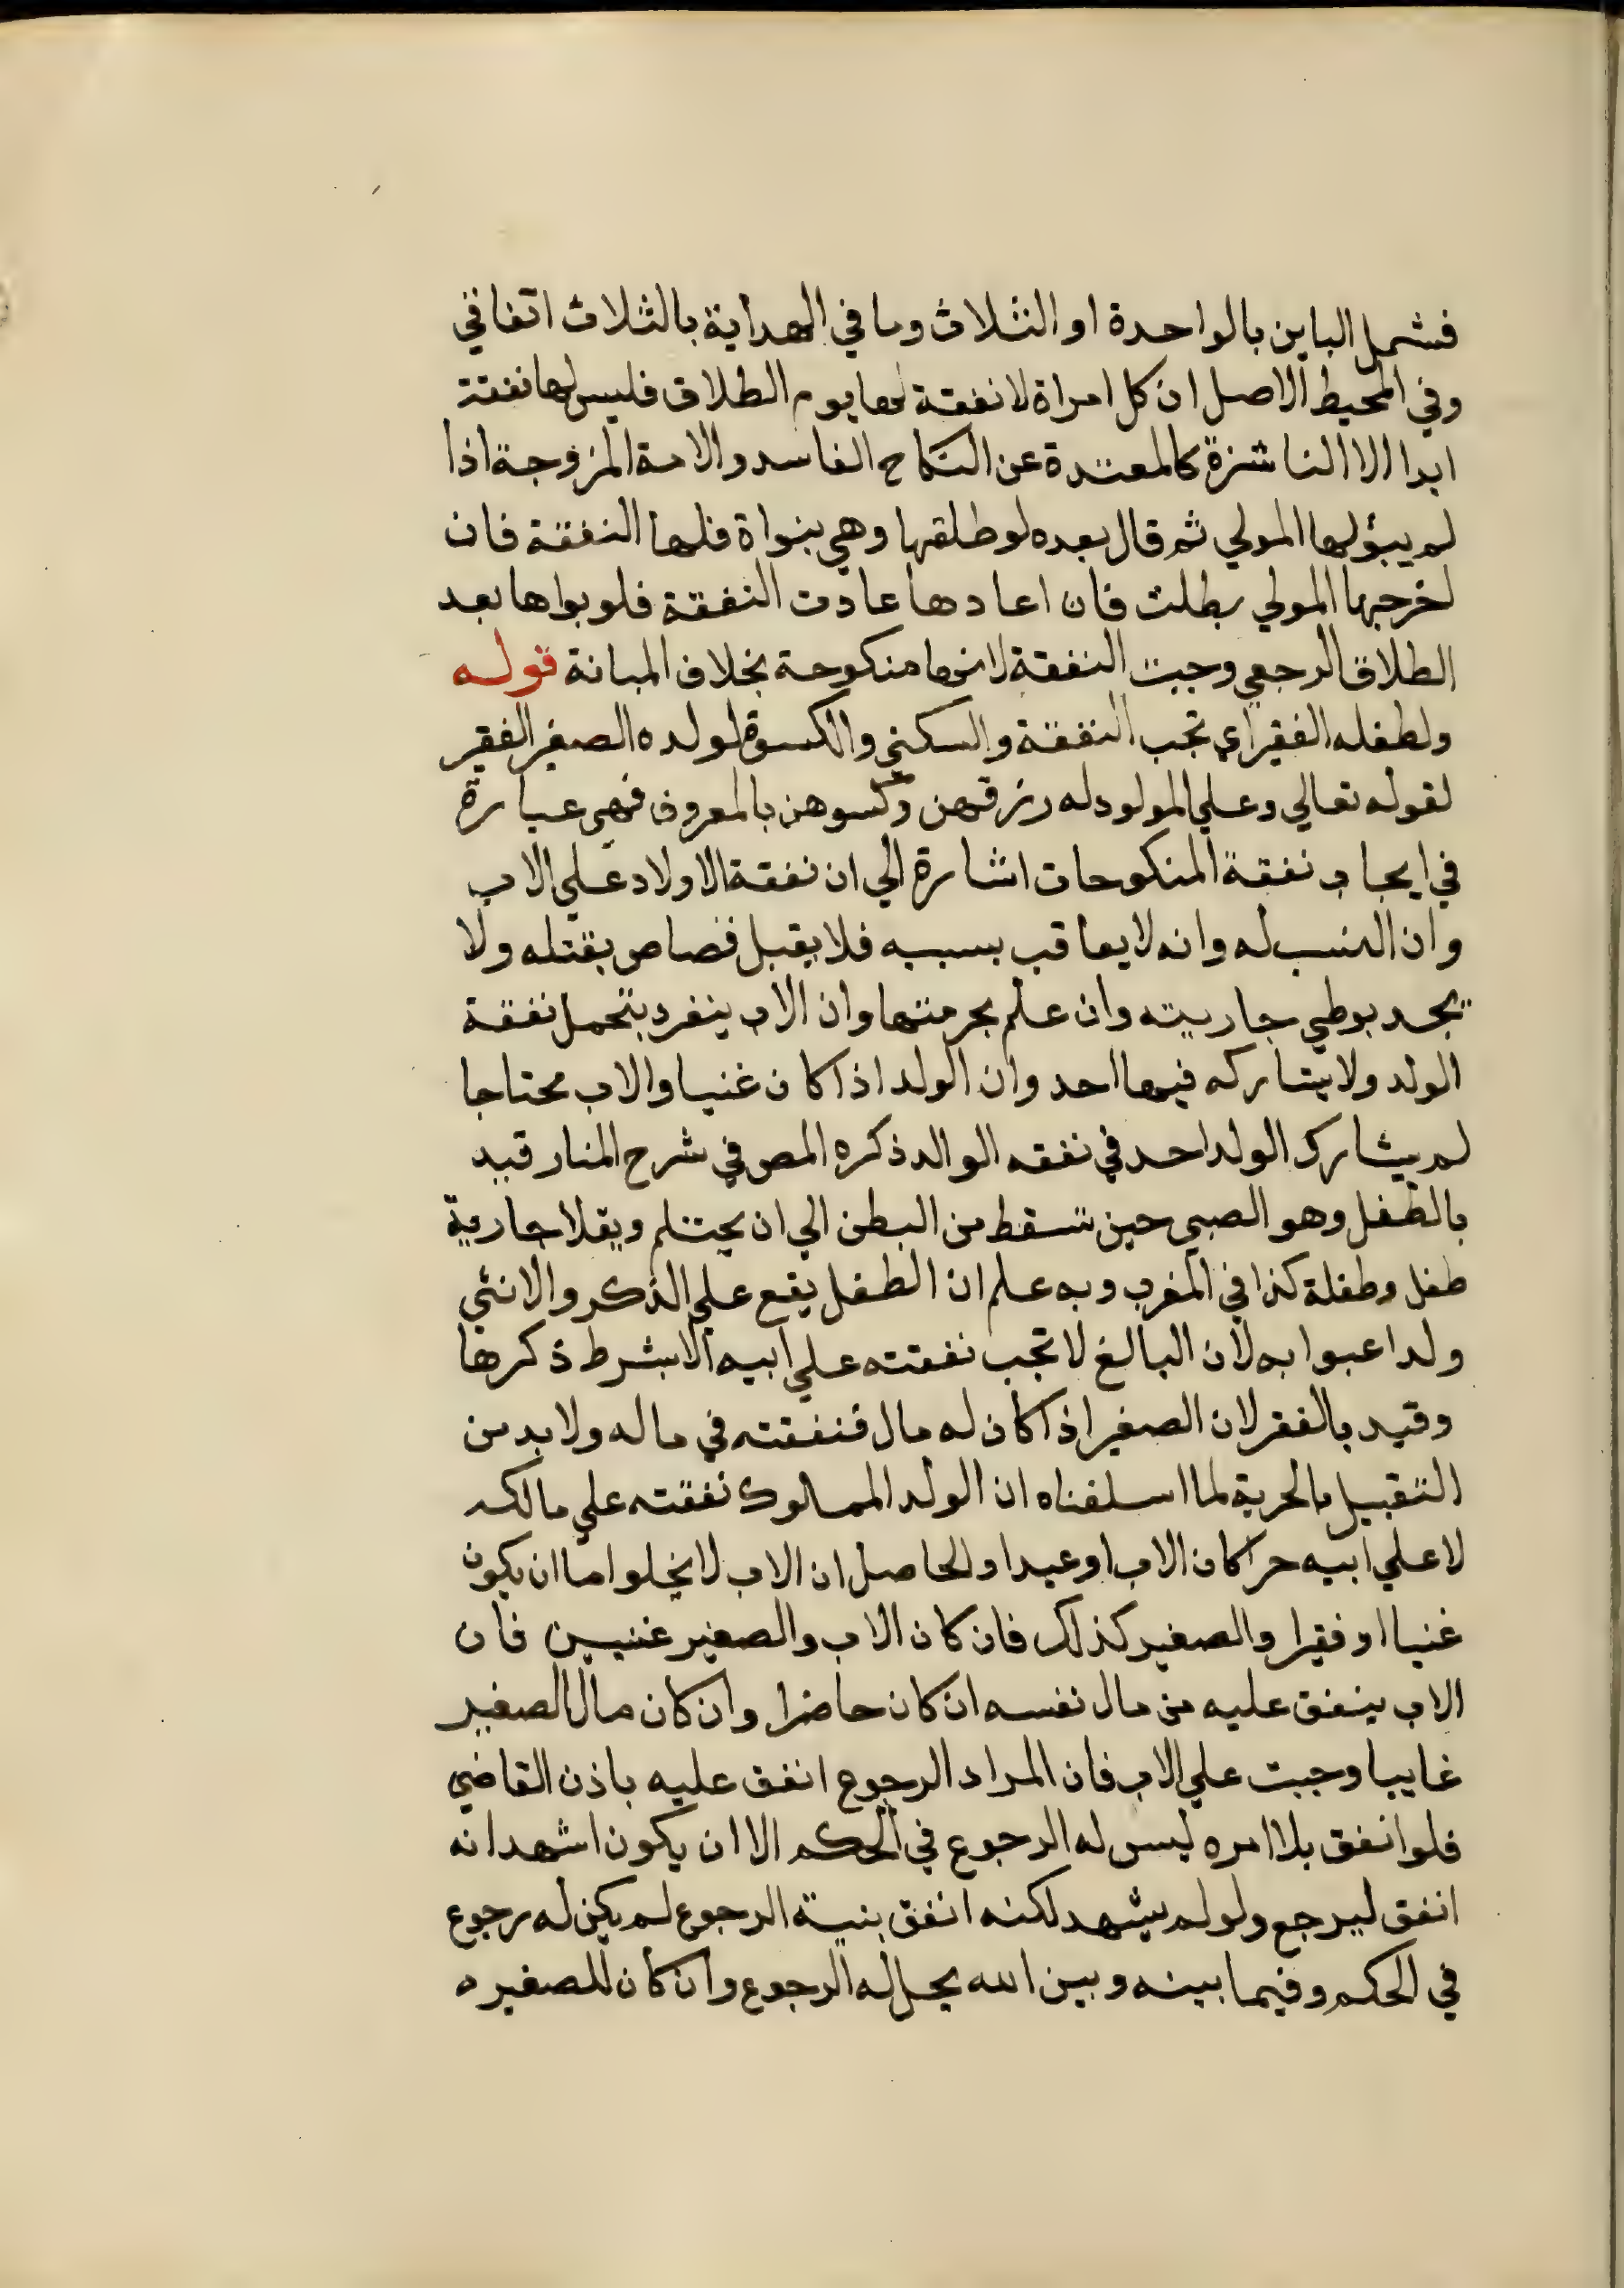 فشمل الباين بالواحدة او الثلاث وما في الهداية بالثلاث اتفاقي
وفي المحيط الاصل ان كل امراة لا نفقة لها يوم الطلاق فليس لها نفقة
ابدا الا الناشزة كالمعتدة عن النكاح الفاسد والامة المزوجة اذا
لم يبؤلها المولي ثم قال بعده لو طلقها وهي بنواة فلها النفقة فان
اخرجها المولي بطلت فان اعادها عادت النفقة فلو بواها بعد
الطلاق الرجعي وجبت النفقة لانها منكوحة بخلاف المبانة قوله
ولطفله الفقير اي تجب النفقة والسكني والكسوة لولده الصغير الفقير
لقوله تعالي وعلي المولود له رزقهن وكسوهن بالمعروف فهي عبارة
في ايجاب نفقة المنكوحات اشارة الي ان نفقة الاولاد علي الاب
وان النسب له وانه لا يعاقب بسببه فلا يقبل قصاص بقتله ولا
يحد بوطي جاريته وان علم بحرمتها وان الاب ينفرد بتحمل نفقة
الولد ولا يشاركه فيها احد وان الولد اذا كان غنيا والاب محتاجا
لم يشارك الولد احد في نفقه الوالد ذكره المص في شرح المنار قيد
بالطفل وهو الصبي حين تسقط من البطن الي ان يحتلم ويقلا جارية
طفل وطفلة كذا في المغرب وبه علم ان الطفل يقع علي الذكر والانثي
ولدا عبوا به لان البالغ لا تجب نفقته علي ابيه الا بشرط ذكرها
وقيد بالفقر لان الصغير اذا كان له مال فنفقته في ماله ولا بد من
التقبيل بالحرية لما اسلفناه ان الولد المملوك نفقته علي مالكه
لا علي ابيه حرا كان الاب او عبدا والحاصل ان الاب لا يخلوا اما ان يكون
غنيا او فقيرا والصغير كذلك فان كان الاب والصغير غنيين فان
الاب ينفق عليه من مال نفسه ان كان حاضرا وان كان مال الصغير
غايبا وجبت علي الاب فان المراد الرجوع انفق عليه باذن القاضي
فلو انفق بلا امره ليس له الرجوع في الحكم الا ان يكون اشهد انه
انفق ليرجع ولو لم يشهد لكنه انفق بنية الرجوع لم يكن له رجوع
في الحكم وفيما بينه وبين الله يحل له الرجوع وان كان للصغير ه